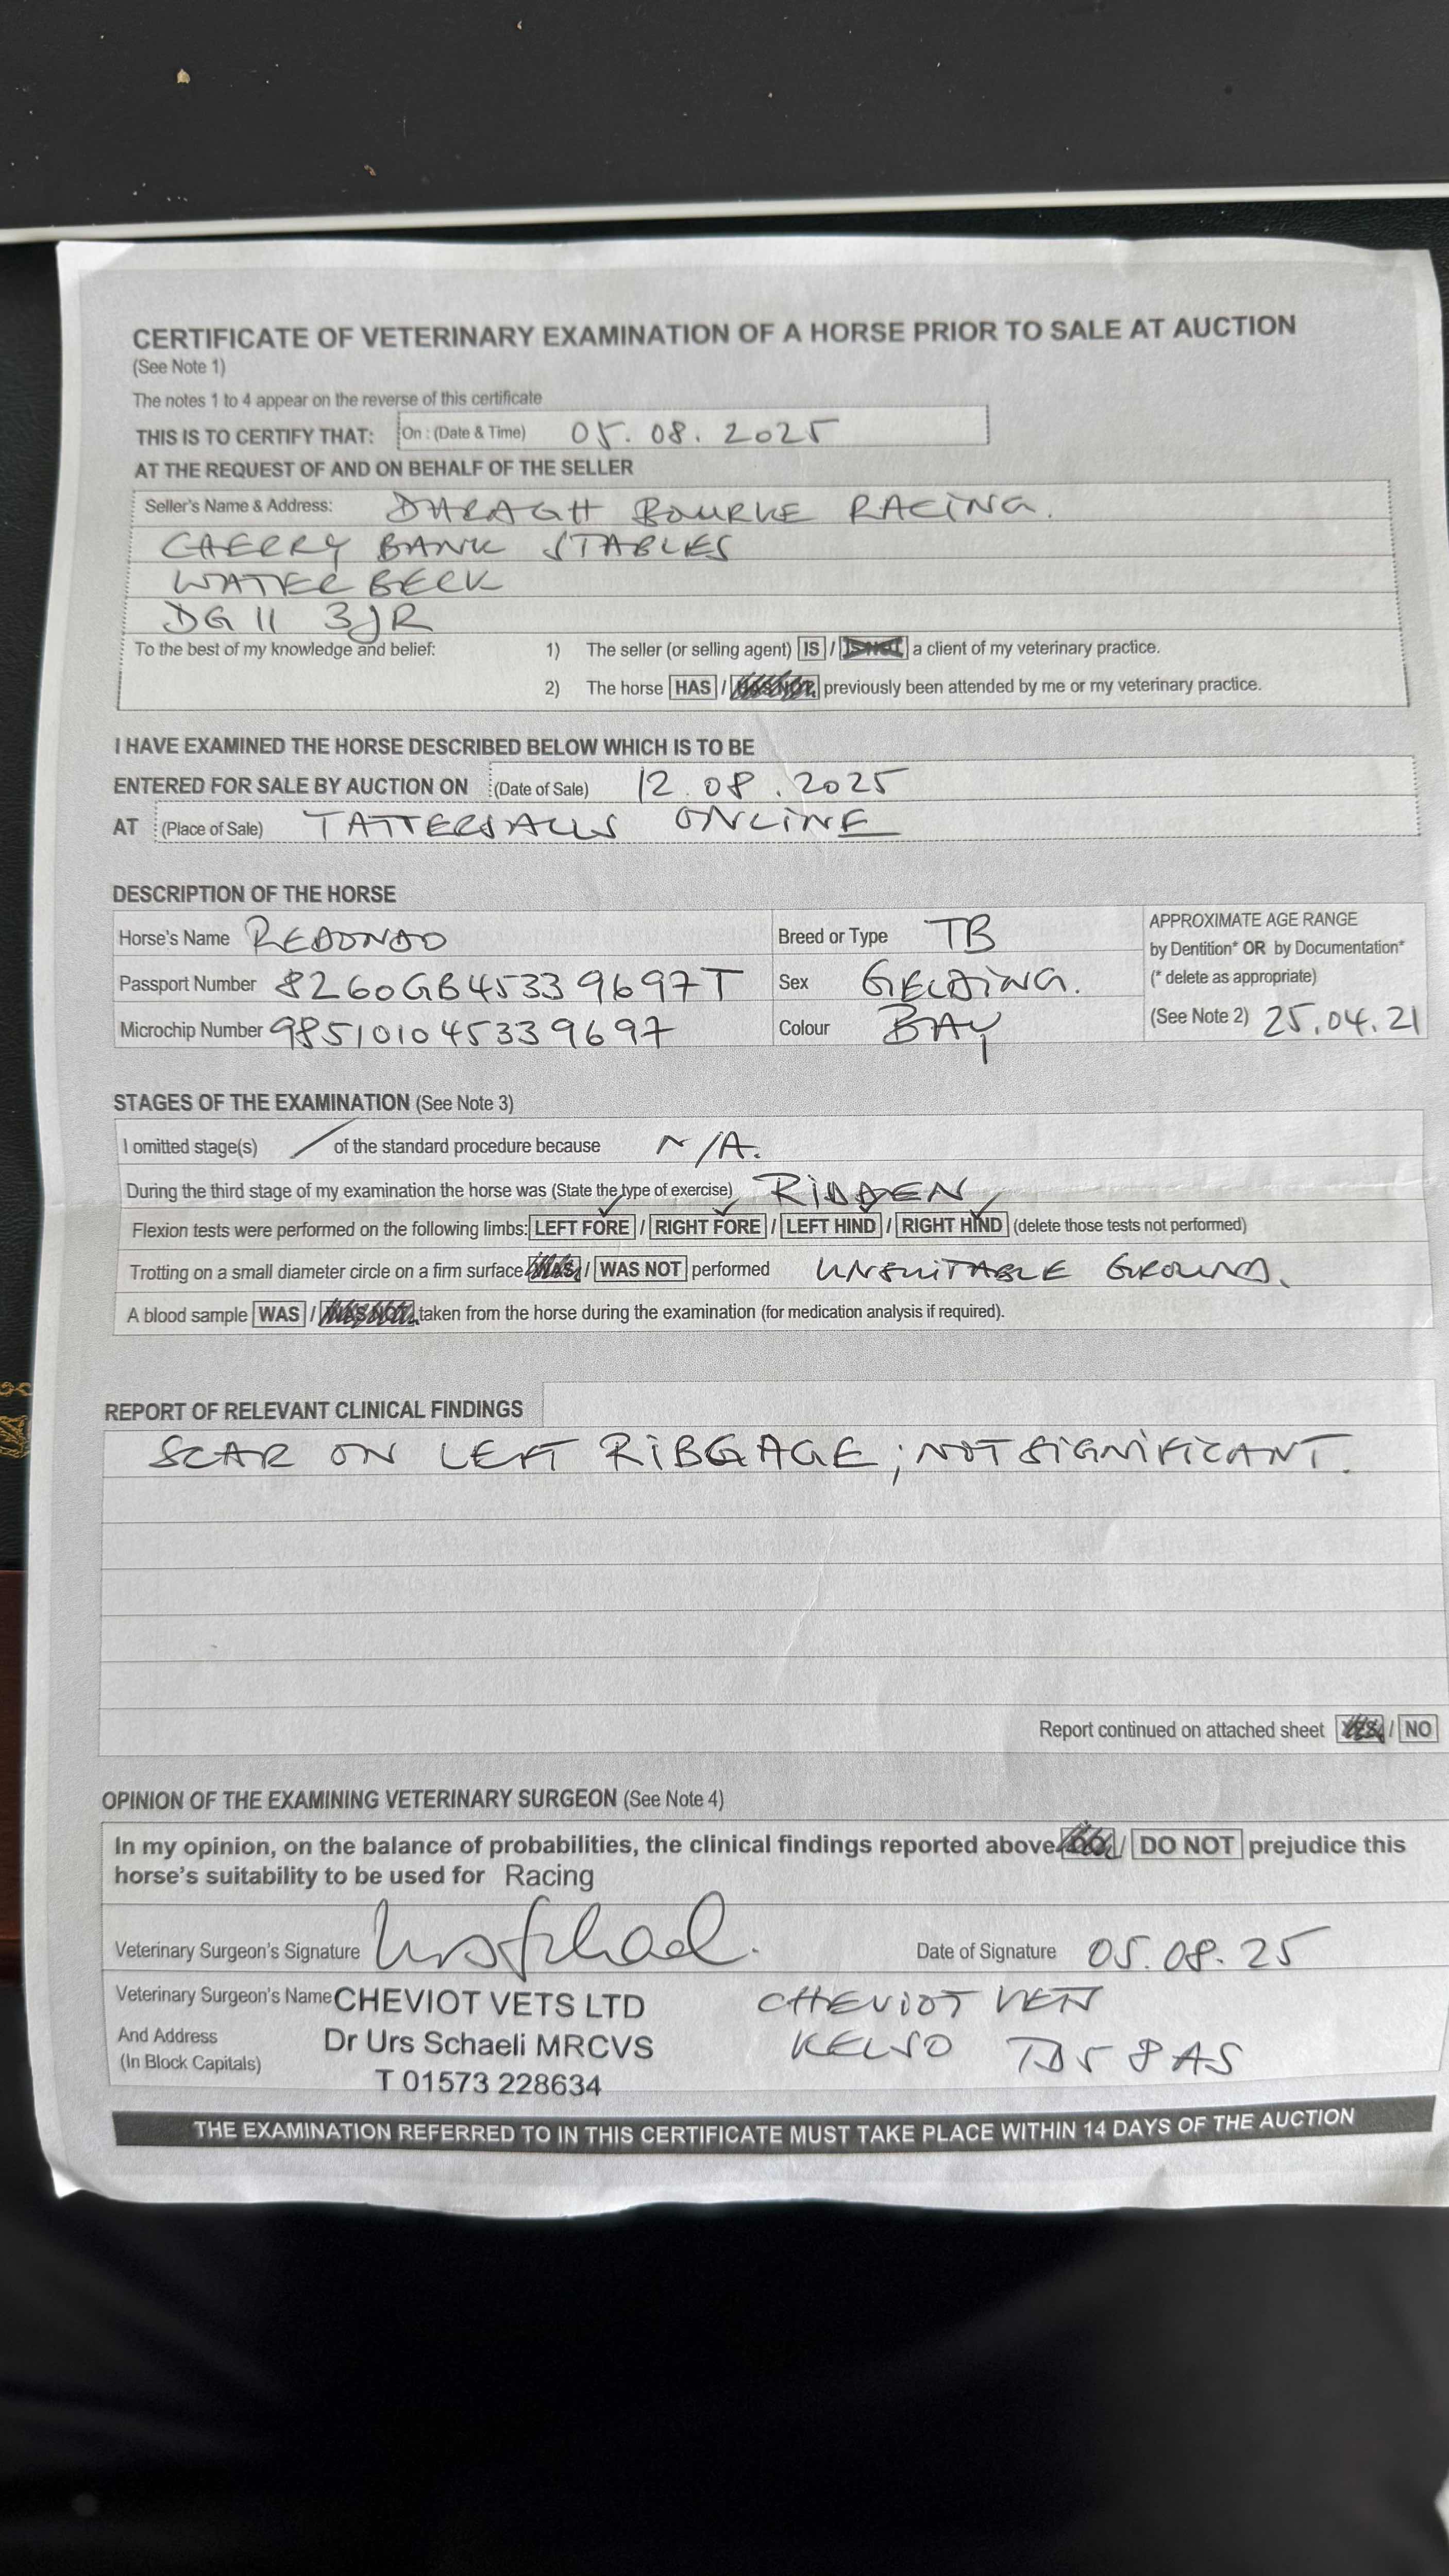 CERTIFICATE OF VETERINARY EXAMINATION OF A HORSE PRIOR TO SALE AT AUCTION
(See Note 1)
The notes 1 to 4 appear on the reverse of this certificate
THIS IS TO CERTIFY THAT: On : (Date & Time) 05.08.2025
AT THE REQUEST OF AND ON BEHALF OF THE SELLER
Seller's Name & Address: DARAGH BOURKE RACING.
CHERRY BANK STABLES
WATER BECK
DG11 3JR
To the best of my knowledge and belief: 1) The seller (or selling agent) IS / IS NOT a client of my veterinary practice.
2) The horse HAS / HAS NOT previously been attended by me or my veterinary practice.
I HAVE EXAMINED THE HORSE DESCRIBED BELOW WHICH IS TO BE
ENTERED FOR SALE BY AUCTION ON (Date of Sale) 12.08.2025
AT (Place of Sale) TATTERSALLS ONLINE
DESCRIPTION OF THE HORSE
Horse's Name REDONDO Breed or Type TB APPROXIMATE AGE RANGE
by Dentition* OR by Documentation*
Passport Number 8260GB45339697T Sex GELDING. (* delete as appropriate)
Microchip Number 985101045339697 Colour BAY (See Note 2) 25.04.21
STAGES OF THE EXAMINATION (See Note 3)
I omitted stage(s) / of the standard procedure because N/A.
During the third stage of my examination the horse was (State the type of exercise) RIDDEN
Flexion tests were performed on the following limbs: LEFT FORE / RIGHT FORE / LEFT HIND / RIGHT HIND (delete those tests not performed)
Trotting on a small diameter circle on a firm surface WAS / WAS NOT performed UNSUITABLE GROUND.
A blood sample WAS / WAS NOT taken from the horse during the examination (for medication analysis if required).
REPORT OF RELEVANT CLINICAL FINDINGS
SCAR ON LEFT RIBGAGE; NOT SIGNIFICANT.
Report continued on attached sheet YES / NO
OPINION OF THE EXAMINING VETERINARY SURGEON (See Note 4)
In my opinion, on the balance of probabilities, the clinical findings reported above DO / DO NOT prejudice this
horse's suitability to be used for Racing
Veterinary Surgeon's Signature Date of Signature 05.08.25
Veterinary Surgeon's Name CHEVIOT VETS LTD CHEVIOT VETS
And Address Dr Urs Schaeli MRCVS KELSO TD5 8AS
(In Block Capitals) T 01573 228634
THE EXAMINATION REFERRED TO IN THIS CERTIFICATE MUST TAKE PLACE WITHIN 14 DAYS OF THE AUCTION